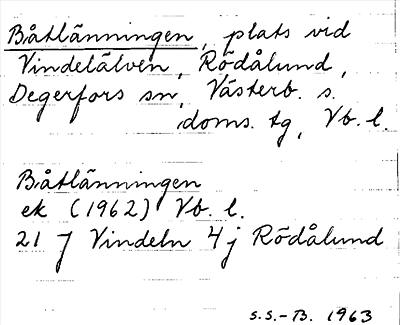 Båtlänningen, plats vid
Vindelälven, Rödålund,
Degerfors sn, Västerb. s.
doms. tg, Vb. l.
Båtlänningen
ek (1962) Vb. l.
21 J Vindeln 4 j Rödålund
s.s.-B. 1963